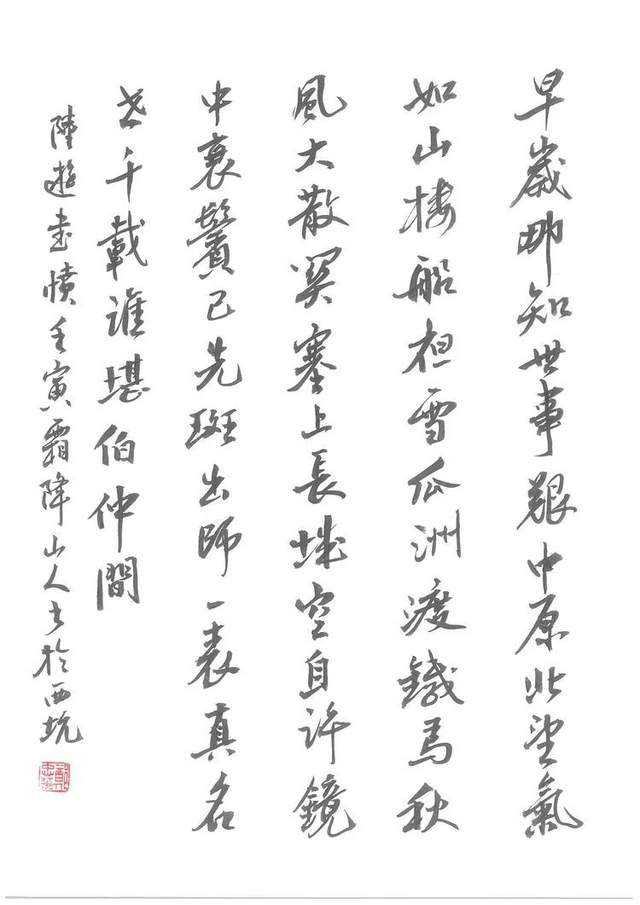 早歲那知世事艱中原北望氣
如山樓船夜雪瓜洲渡鐵馬秋
風大散關塞上長城空自許鏡
中衰鬢已先斑出師一表真名
世千載誰堪伯仲間
陸遊書憤壬寅霜降山人書於西坑